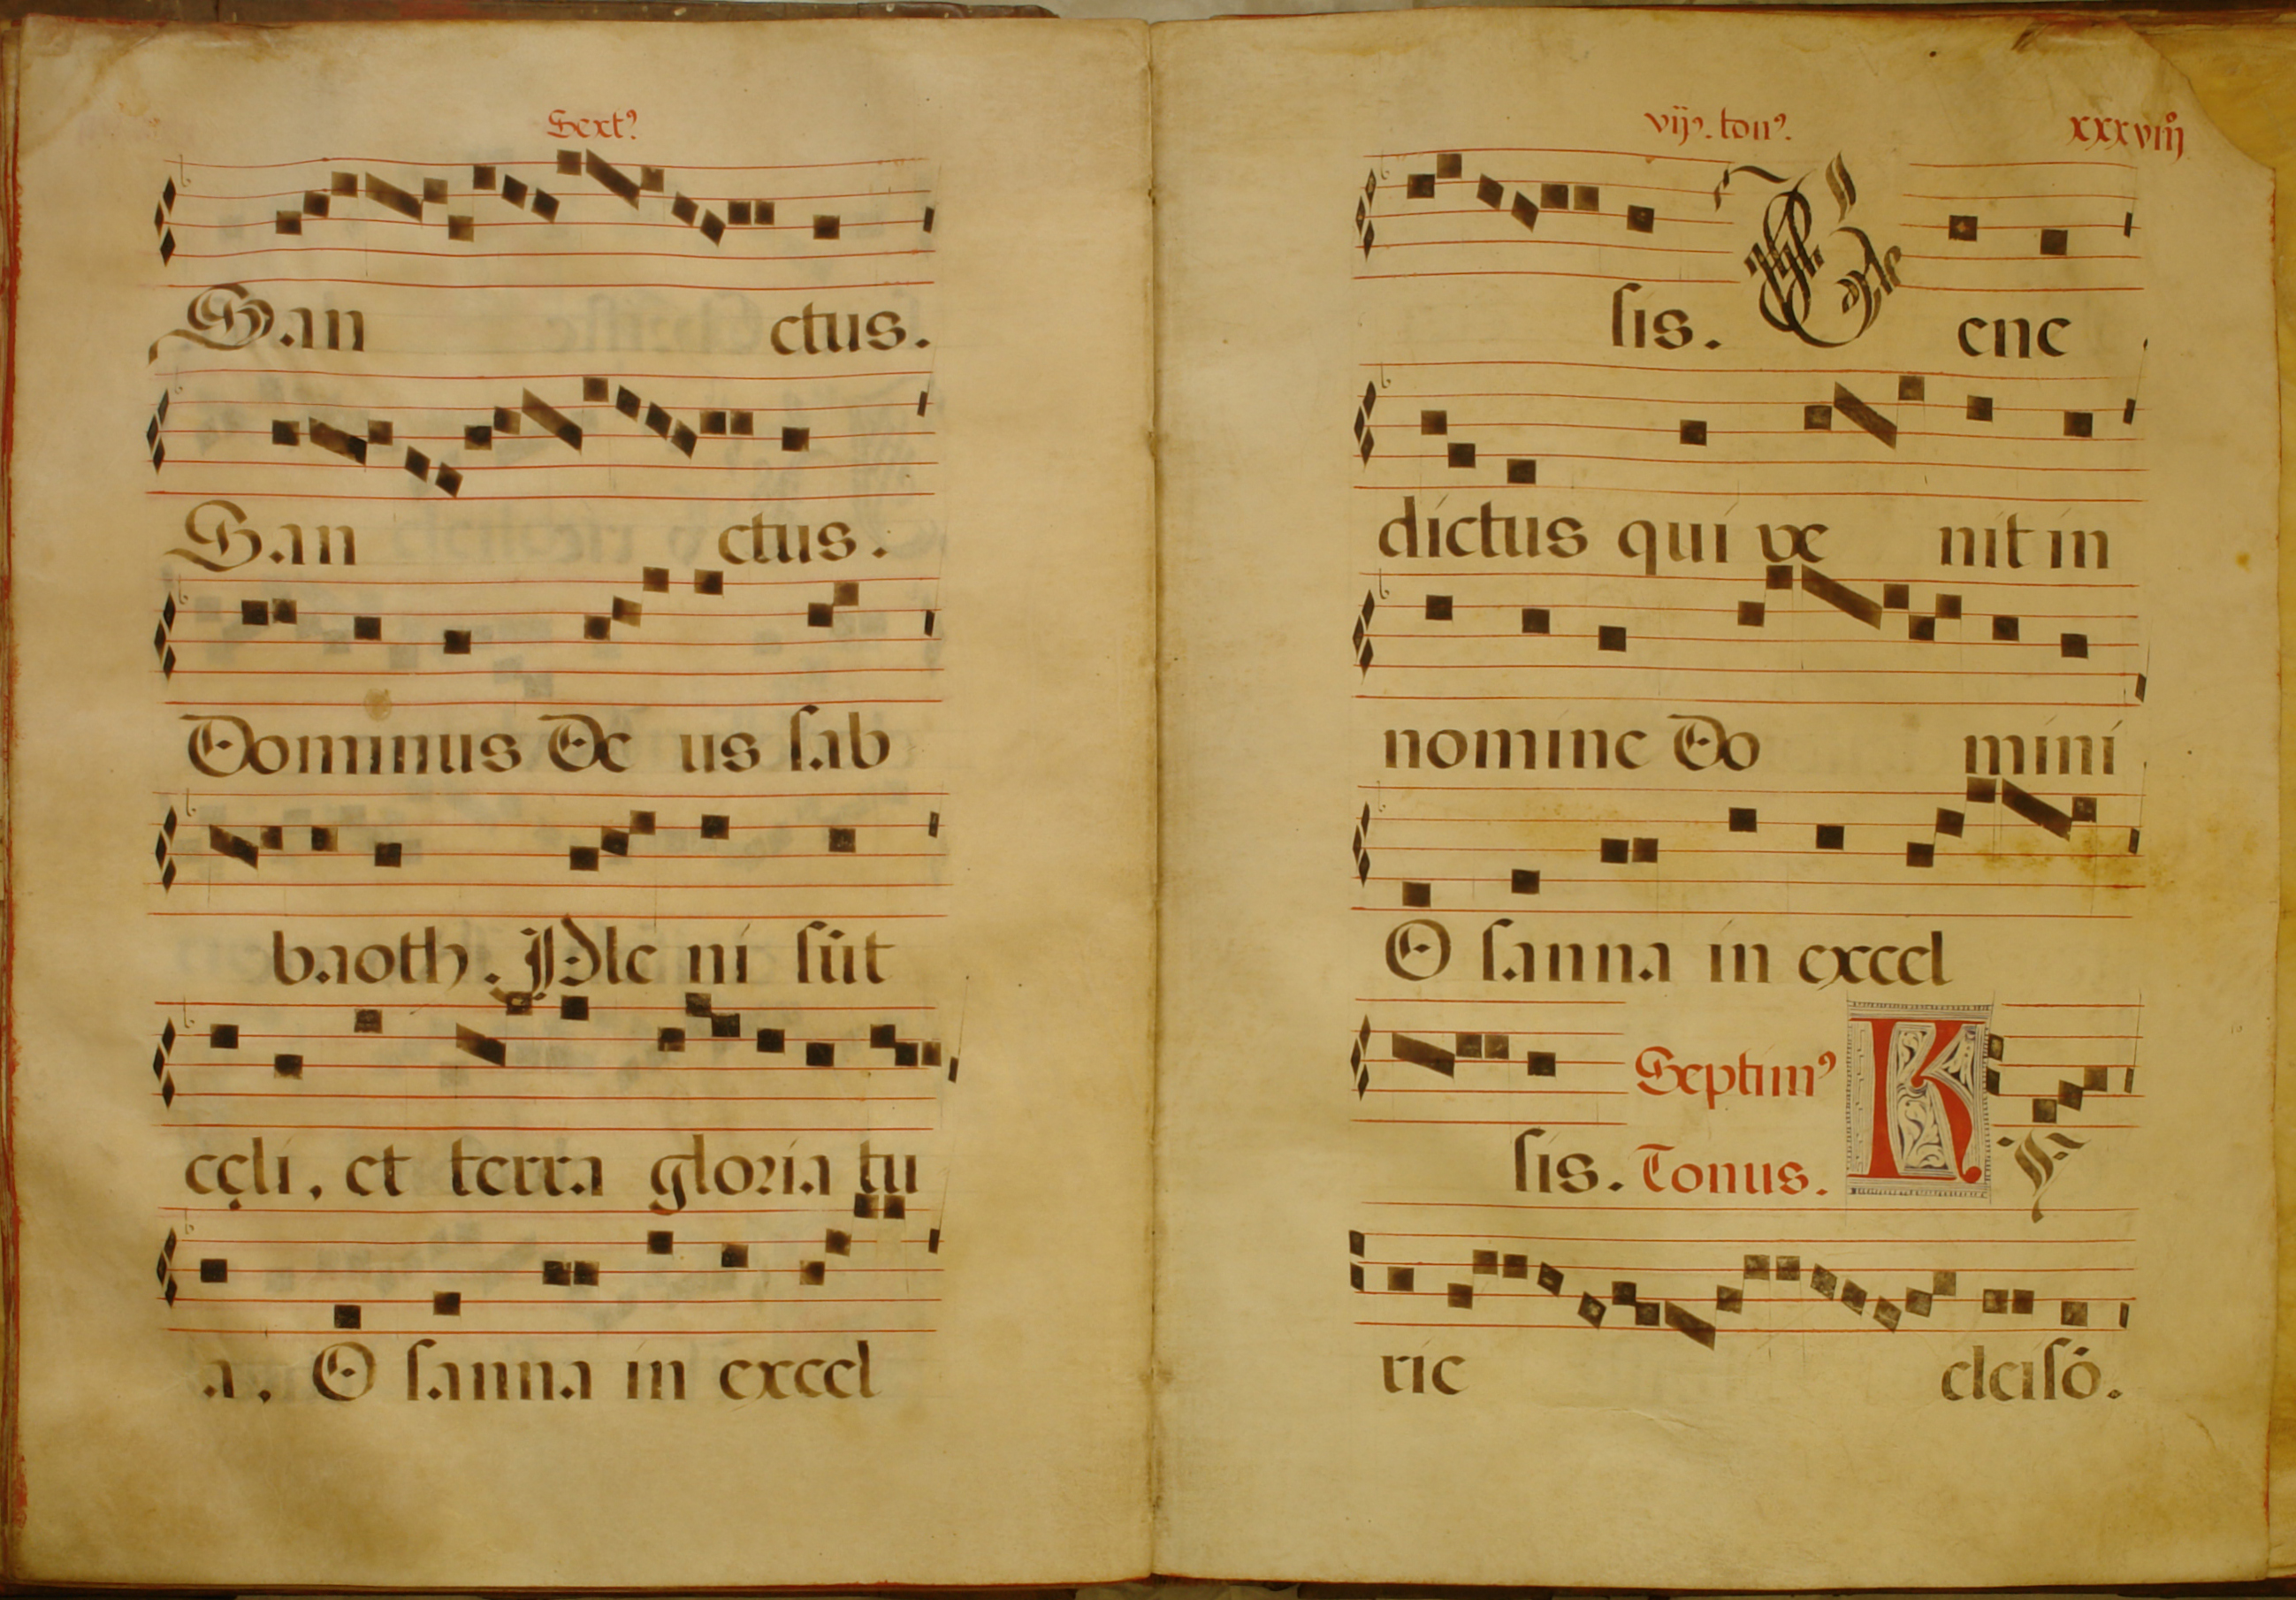 Sext⁹
San ctus.
San ctus.
Dominus De us sab
baoth. Ple ni sūt
cęli, et terra gloria tu
a. O sanna in excel
vij⁹. ton⁹. xxxviij
sis. Bene
dictus qui ve nit in
nomine Do mini
O sanna in excel
sis. Septim⁹ Tonus. Ky
rie eleisō.